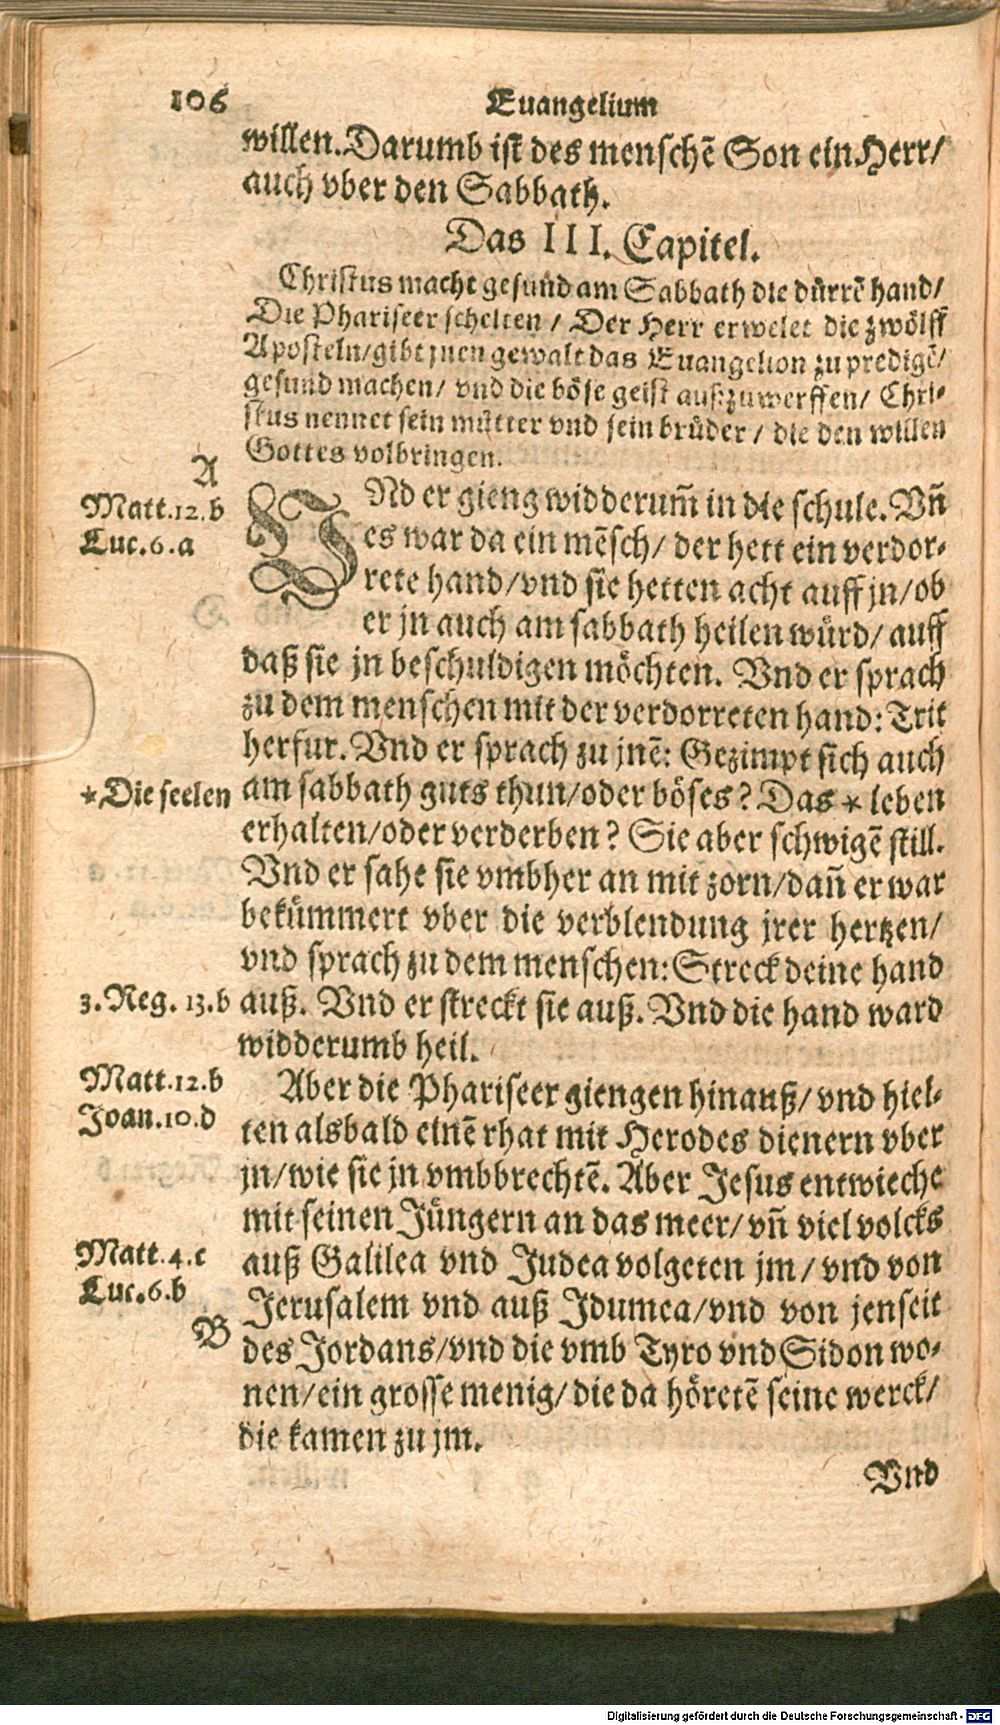 106 Euangelium
willen. Darumb ist des menschẽ Son ein Herr/
auch vber den Sabbath.
Das III. Capitel.
Christus macht gesund am Sabbath die dürrẽ hand/
Die Phariseer schelten / Der Herr erwelet die zwölff
Aposteln/gibt jnen gewalt das Euangelion zu predigẽ/
gesund machen/ vnd die böse geist außzuwerffen/ Chri-
stus nennet sein mutter vnd sein brüder / die den willen
Gottes volbringen.
A
Matt.12.b
Luc.6.a
VNd er gieng widderum̃ in die schule. Vñ
es war da ein mẽsch/ der hett ein verdor-
rete hand/vnd sie hetten acht auff jn/ob
er jn auch am sabbath heilen würd/ auff
daß sie jn beschuldigen möchten. Vnd er sprach
zu dem menschen mit der verdorreten hand: Trit
herfur. Vnd er sprach zu jnẽ: Gezimpt sich auch
*Die seelen
am sabbath guts thun/oder böses? Das * leben
erhalten/oder verderben? Sie aber schwigẽ still.
Vnd er sahe sie vmbher an mit zorn/dañ er war
bekümmert vber die verblendung jrer hertzen/
vnd sprach zu dem menschen: Streck deine hand
3. Reg. 13.b
auß. Vnd er streckt sie auß. Vnd die hand ward
widderumb heil.
Matt.12.b
Joan.10.d
Aber die Phariseer giengen hinauß/ vnd hiel-
ten alsbald einẽ rhat mit Herodes dienern vber
jn/wie sie jn vmbbrechtẽ. Aber Jesus entwieche
mit seinen Jüngern an das meer/ vñ viel volcks
Matt.4.c
Luc.6.b
auß Galilea vnd Judea volgeten jm/ vnd von
Jerusalem vnd auß Idumea/vnd von jenseit
B
des Jordans/vnd die vmb Tyro vnd Sidon wo-
nen/ein grosse menig/ die da höretẽ seine werck/
die kamen zu jm.
Vnd
Digitalisierung gefördert durch die Deutsche Forschungsgemeinschaft - DFG